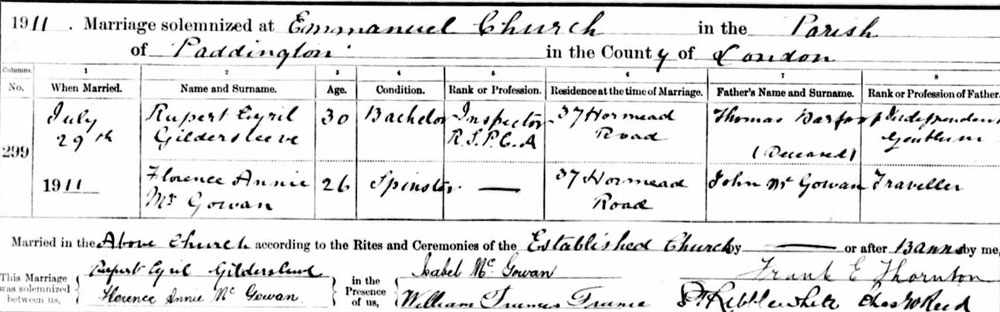 1911. Marriage solemnized at Emmanuel Church in the Parish
of Paddington in the County of London
Columns. 1 2 3 4 5 6 7 8
No. When Married. Name and Surname. Age. Condition. Rank or Profession. Residence at the time of Marriage. Father's Name and Surname. Rank or Profession of Father.
July Rupert Cyril 30 Bachelor Inspector 37 Hormead Thomas Independent
29th Gildersleeve R.S.P.C.A Road (Deceased) Gentleman
299
1911 Florence Annie 26 Spinster — 37 Hormead John Mc Gowan Traveller
Mc Gowan Road
Married in the Above Church according to the Rites and Ceremonies of the Established Church by — or after Banns by me,
This Marriage was solemnized between us, Rupert Cyril Gildersleeve in the Presence of us, Isabel Mc Gowan Frank E Thornton
Florence Annie Mc Gowan William Francis Chas W Reed